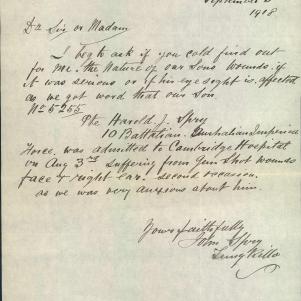 September
1918
Dr Sir or Madam
I beg to ask if you cold find out
for me the Nature of our Sons Wounds if
it was serious or if his eye sight is affected
as we got word that our Son.
No 5255
Pte Harold J. Spry
10 Battalion. Australian Imperial
Force. was admitted to Cambridge Hospital
on Aug 3rd suffering from Gun Shot wounds
face & right ear. second occasion.
as we was very anxious about him.
Yours faithfully
John Spry